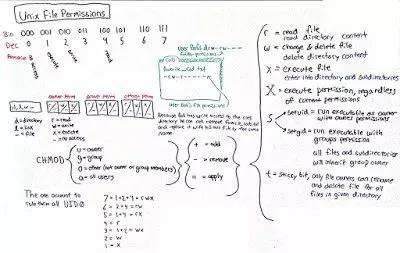 Unix File Permissions
Bin 000 001 010 011 100 101 110 111
Dec 0 1 2 3 4 5 6 7
execute
write
read
owner perm group perm other perm
d = directory r = read
l = link w = write
- = file x = execute
- = no access
CHMOD
u = owner
g = group
o = other (not owner or group members)
a = all users
+ = add
- = remove
= = apply
The one account to
rule them all UID0
7 = 1+2+4 = rwx
6 = 2+4 = rw
5 = 1+4 = rx
4 = r
3 = 1+2 = wx
2 = w
1 = x
User Bob's
Cat
favorite_cat.txt
User Bob's file permissions
Because Bob has write access to the cats
directory he can
and replace it with his own file by the same
name.
r = read file
read directory content
w = change & delete file
delete directory content
x = execute file
enter into directory and subdirectories
X = execute permission, regardless
of current permissions
s
setuid = run executable as owner
with owners permissions
setgid = run executable with
groups permission
all files and subdirectories
will inherit group owner
t = sticky bit, only file owners can rename
and delete file for all
files in given directory